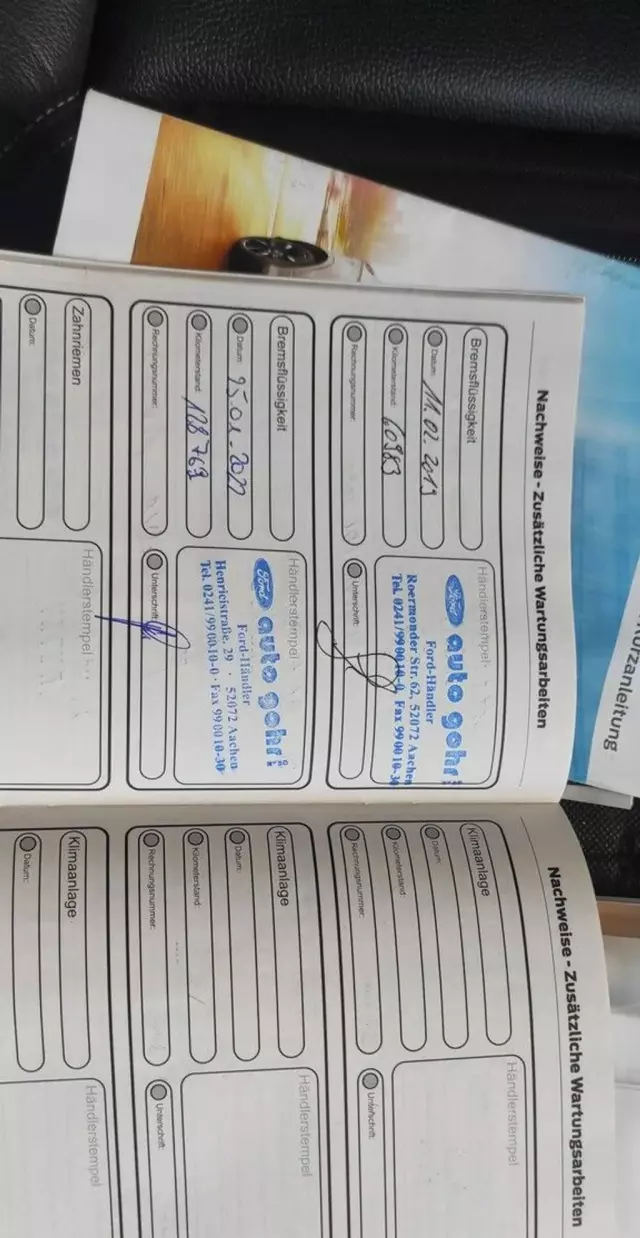 Nachweise - Zusätzliche Wartungsarbeiten
Bremsflüssigkeit
Datum: 11.02.2019
Kilometerstand: 60983
Rechnungsnummer:
Händlerstempel
Ford auto gohr
Ford-Händler
Roermonder Str. 62, 52072 Aachen
Tel. 0241/99 00 10-0, Fax 99 00 10-30
Unterschrift:
Bremsflüssigkeit
Datum: 25.01.2022
Kilometerstand: 128769
Rechnungsnummer:
Händlerstempel
Ford auto gohr
Ford-Händler
Henricistraße, 29 · 52072 Aachen
Tel. 0241/99 00 10-0 · Fax 99 00 10-30
Unterschrift:
Zahnriemen
Datum:
Händlerstempel
Nachweise - Zusätzliche Wartungsarbeiten
Klimaanlage
Datum:
Kilometerstand:
Rechnungsnummer:
Händlerstempel
Unterschrift:
Klimaanlage
Datum:
Kilometerstand:
Rechnungsnummer:
Händlerstempel
Unterschrift:
Klimaanlage
Datum:
Händlerstempel
Kurzanleitung